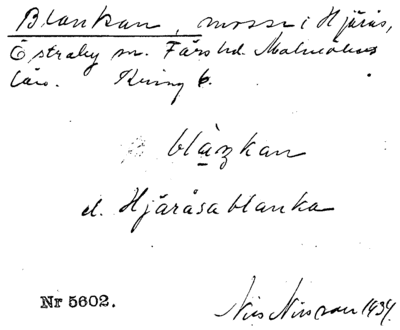 Blankan, mosse i Hjärås,
Östraby sn. Färs hd. Malmöhus
län. Kring 6.
blàŋkan
el. Hjäråsablanka
Nr 5602.
Nils Nilsson 1934.